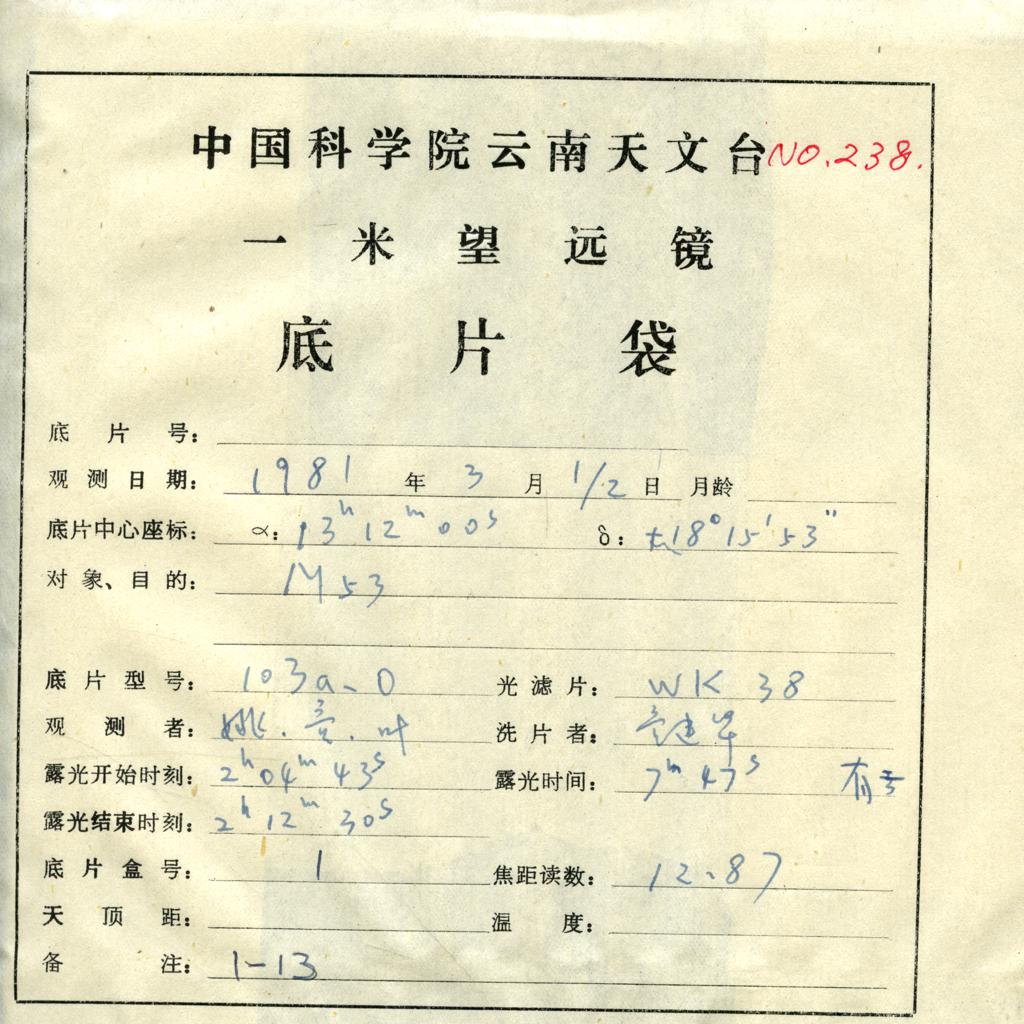 中国科学院云南天文台 NO.238.
一米望远镜
底片袋
底片号：
观测日期：1981年3月1/2日 月龄
底片中心座标： α：13h12m00s δ：+18°15′53″
对象、目的： M53
底片型号：103a-O 光滤片：WK 38
观测者：姚. .叶 洗片者：
露光开始时刻：2h04m43s 露光时间：7m47s 有云
露光结束时刻：2h12m30s
底片盒号：1 焦距读数：12.87
天顶距： 温度：
备注：1-13